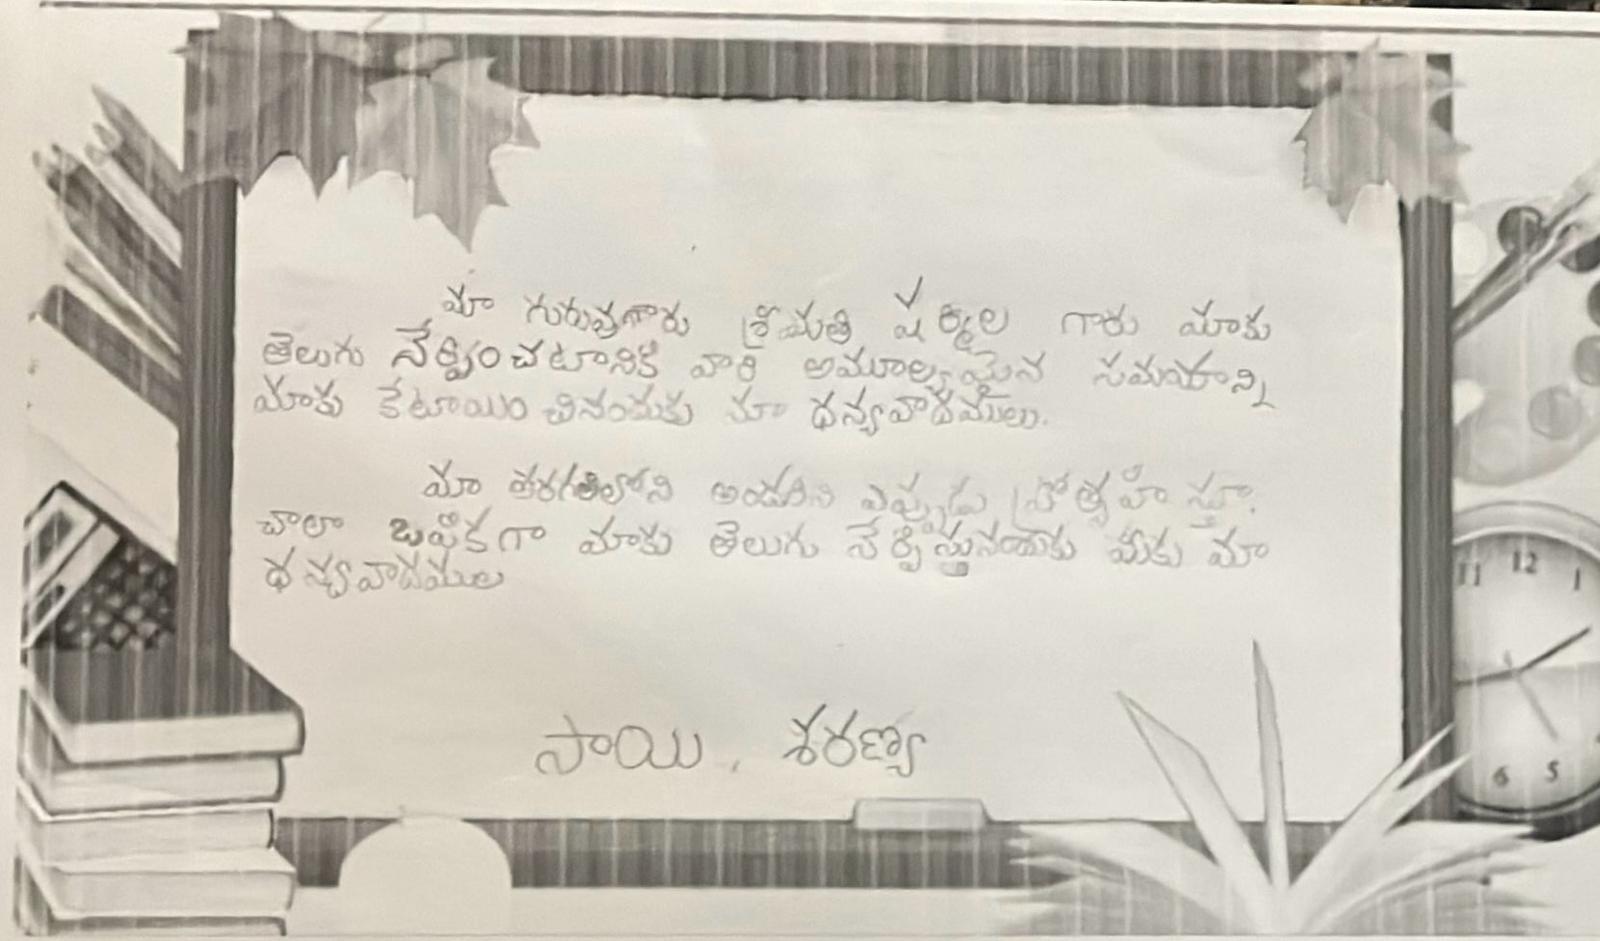 మా గురువుగారు శ్రీమతి షర్మిల గారు మాకు
తెలుగు నేర్పించటానికి వారి అమూల్యమైన సమయాన్ని
మాకు కేటాయించినందుకు మా ధన్యవాదములు.
మా తరగతిలోని అందరిని ఎప్పుడు ప్రోత్సహిస్తూ.
చాలా ఒపికగా మాకు తెలుగు నేర్పిస్తునందుకు మీకు మా
ధన్యవాదముల
సాయి, శరణ్య
11 12 1
6 5